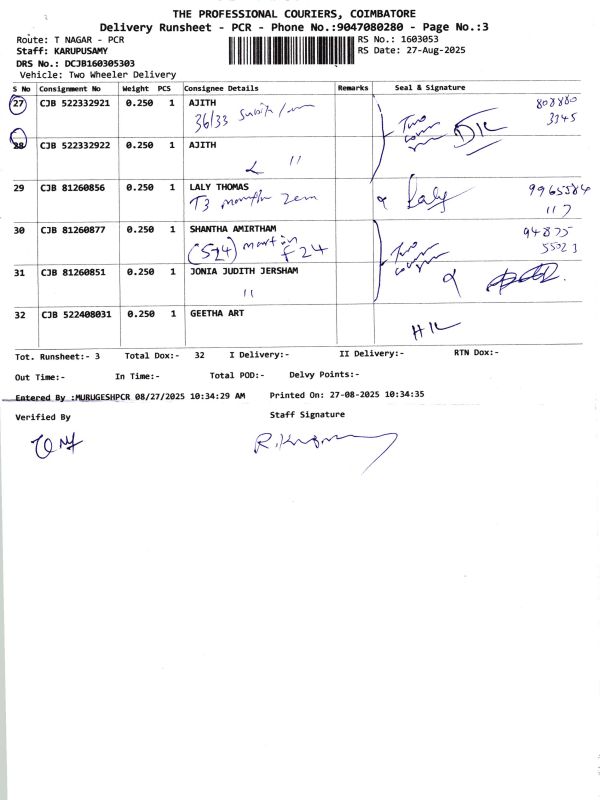 THE PROFESSIONAL COURIERS, COIMBATORE
Delivery Runsheet - PCR - Phone No.:9047080280 - Page No.:3
Route: T NAGAR - PCR
RS No.: 1603053
Staff: KARUPUSAMY
RS Date: 27-Aug-2025
DRS No.: DCJB160305303
Vehicle: Two Wheeler Delivery
S No Consignment No Weight PCS Consignee Details Remarks Seal & Signature
27 CJB 522332921 0.250 1 AJITH 808880
36/33 3345
Two
28 CJB 522332922 0.250 1 AJITH
"
29 CJB 81260856 0.250 1 LALY THOMAS Laly 9965584
T3 117
30 CJB 81260877 0.250 1 SHANTHA AMIRTHAM 94875
(S24) martin F24 55023
Two
31 CJB 81260851 0.250 1 JONIA JUDITH JERSHAM
"
32 CJB 522408031 0.250 1 GEETHA ART
Tot. Runsheet:- 3 Total Dox:- 32 I Delivery:- II Delivery:- RTN Dox:-
Out Time:- In Time:- Total POD:- Delvy Points:-
Entered By :MURUGESHPCR 08/27/2025 10:34:29 AM Printed On: 27-08-2025 10:34:35
Verified By Staff Signature